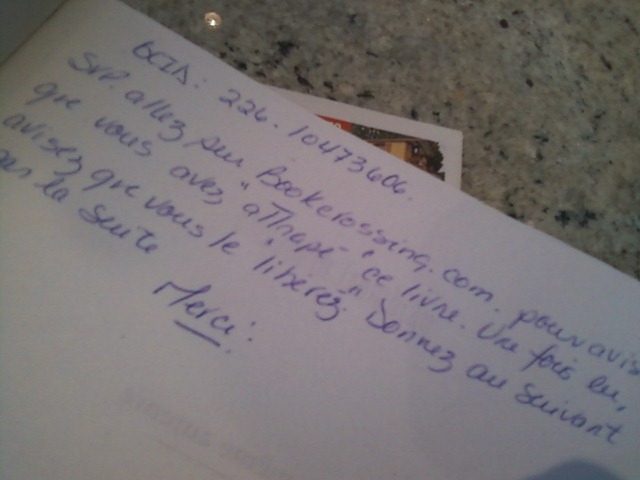 BCID: 226-10473606.
SVP. allez sur Bookcrossing.com. pour avis
que vous avez "attrapé" ce livre. Une fois lu,
avisez que vous le "libérez". Donnez au suivant
par la suite
Merci!